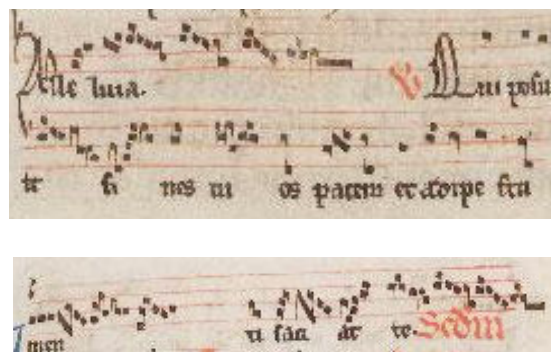 Alle luia. V Qui posu
it fi nes tu os pacem et adipe fru
ti sfaci at te. Scdm
men